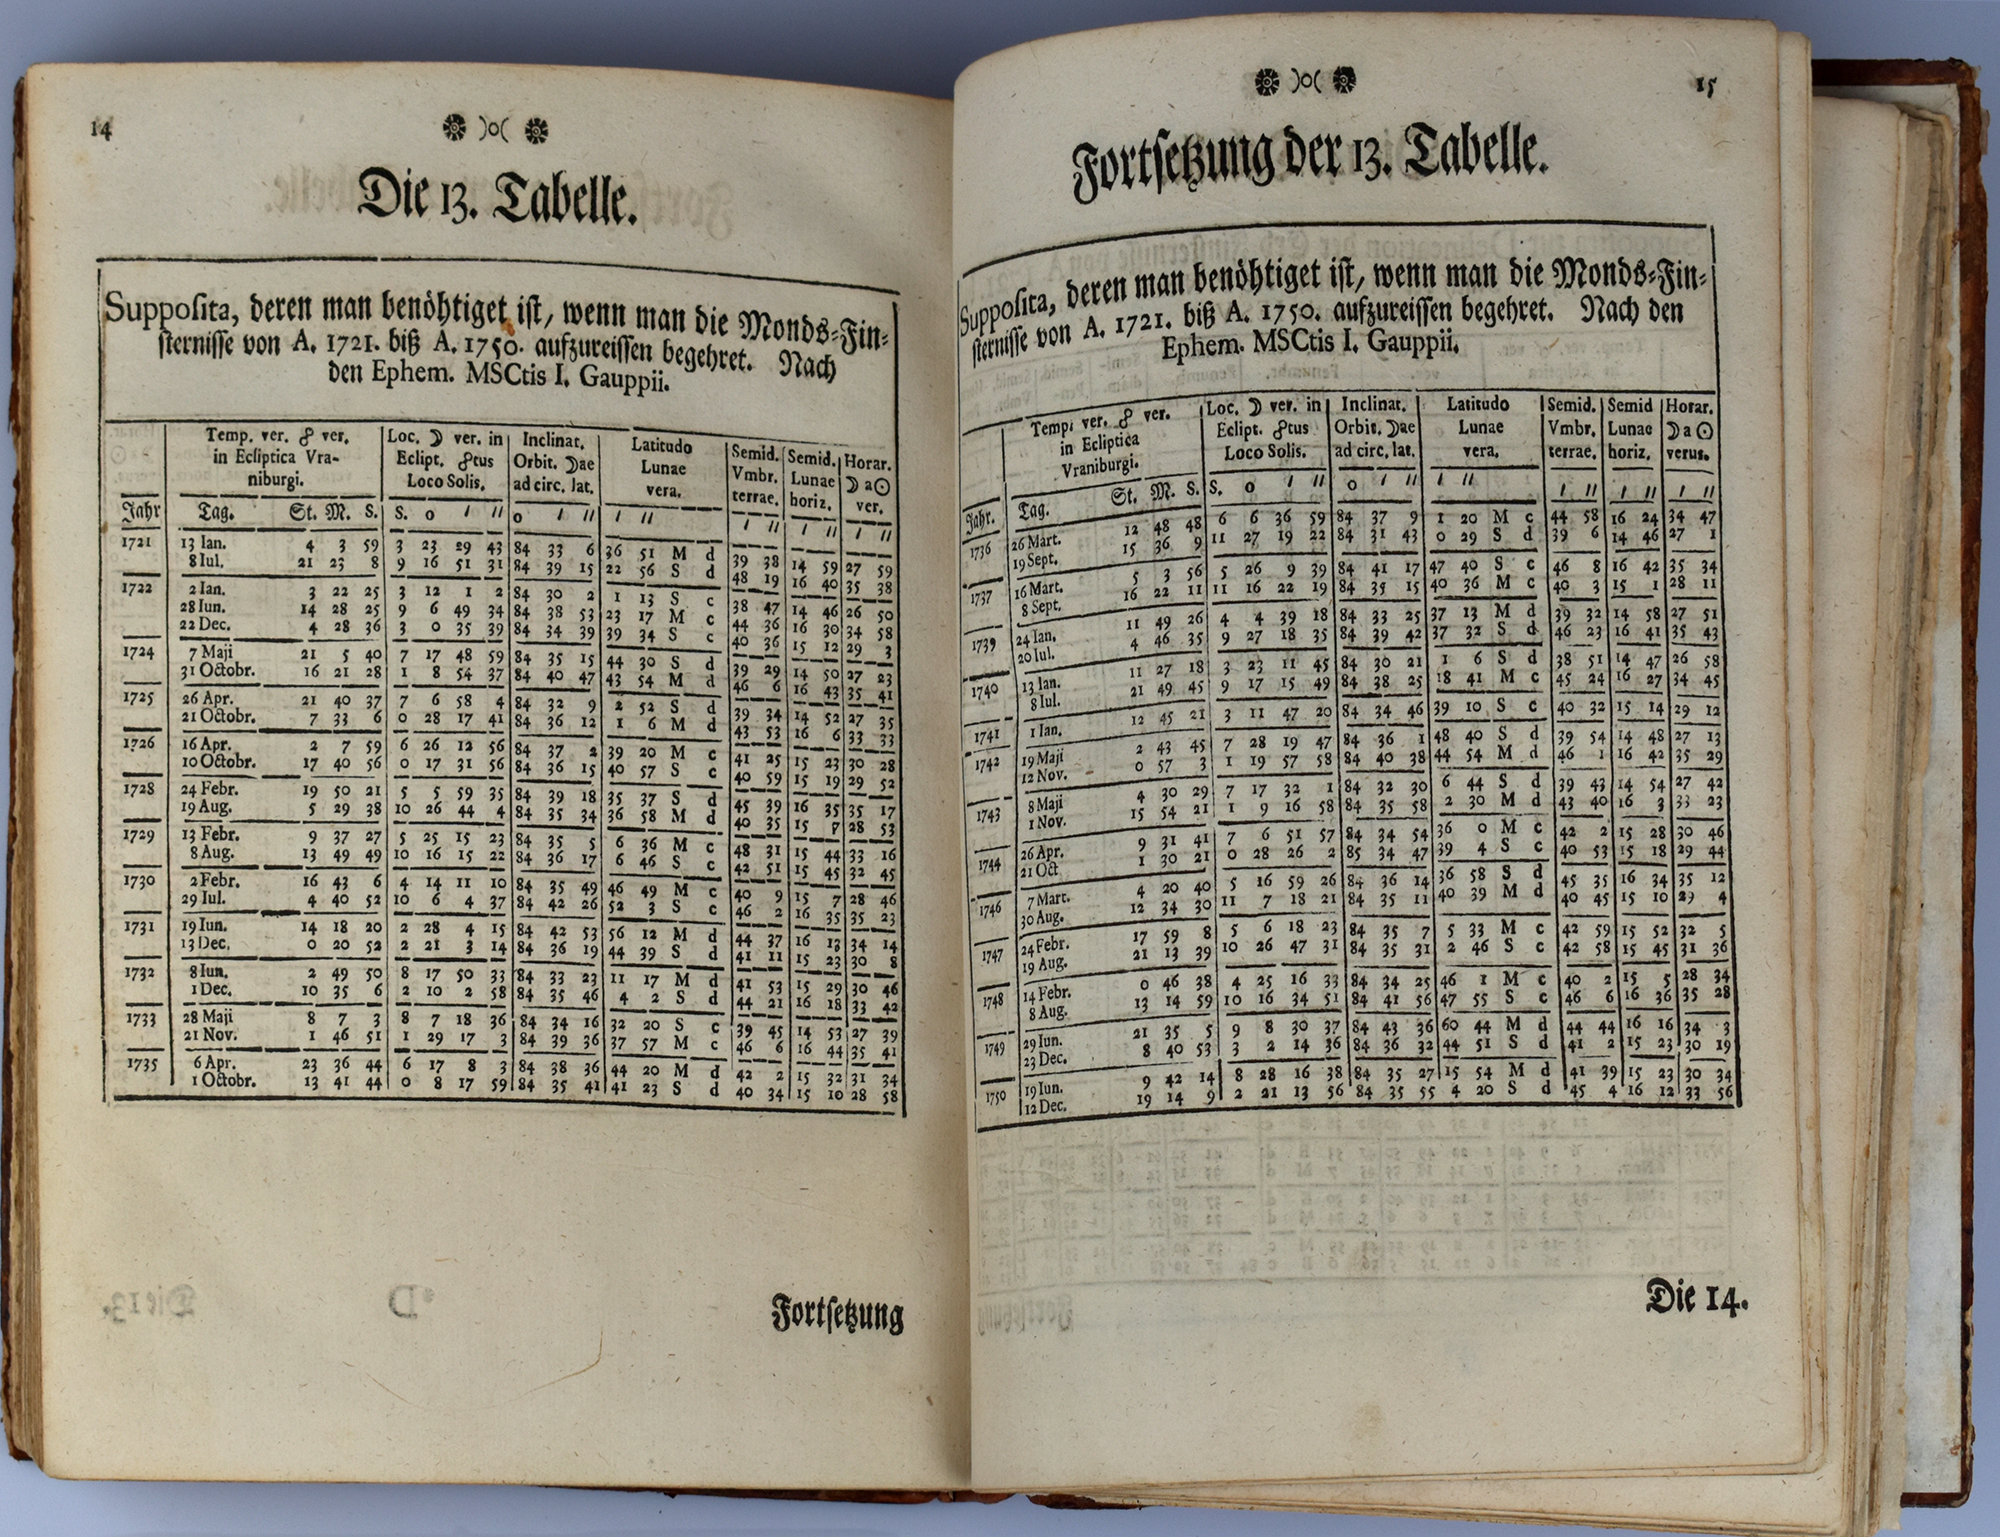 14
)o(
Die 13. Tabelle.
Supposita, deren man benöhtiget ist, wenn man die Monds-Fin-
sternisse von A. 1721. biß A. 1750. aufzureissen begehret. Nach
den Ephem. MSCtis I. Gauppii.
Temp. ver. ☍ ver. Loc. ☽ ver. in Inclinat. Latitudo Semid. Semid. Horar.
in Ecliptica Vra- Eclipt. ☍tus Orbit. ☽ae Lunae Vmbr. Lunae ☽ a ☉
niburgi. Loco Solis. ad circ. lat. vera. terrae. horiz. ver.
Jahr Tag. St. M. S. S. o / // o / // / // / // / // / //
1721 13 Ian. 4 3 59 3 23 29 43 84 33 6 36 51 M d 39 38 14 59 27 59
8 Iul. 21 23 8 9 16 51 31 84 39 15 22 56 S d 48 19 16 40 35 38
1722 2 Ian. 3 22 25 3 12 1 2 84 30 2 1 13 S c 38 47 14 46 26 50
28 Iun. 14 28 25 9 6 49 34 84 38 53 23 17 M c 44 36 16 30 34 58
22 Dec. 4 28 36 3 0 35 39 84 34 39 39 34 S c 40 36 15 12 29 3
1724 7 Maji 21 5 40 7 17 48 59 84 35 15 44 30 S d 39 29 14 50 27 23
31 Octobr. 16 21 28 1 8 54 37 84 40 47 43 54 M d 46 6 16 43 35 41
1725 26 Apr. 21 40 37 7 6 58 4 84 32 9 2 52 S d 39 34 14 52 27 35
21 Octobr. 7 33 6 0 28 17 41 84 36 12 1 6 M d 43 53 16 6 33 33
1726 16 Apr. 2 7 59 6 26 12 56 84 37 2 39 20 M c 41 25 15 23 30 28
10 Octobr. 17 40 56 0 17 31 56 84 36 15 40 57 S c 40 59 15 19 29 52
1728 24 Febr. 19 50 21 5 5 59 35 84 39 18 35 37 S d 45 39 16 35 35 17
19 Aug. 5 29 38 10 26 44 4 84 35 34 36 58 M d 40 35 15 7 28 53
1729 13 Febr. 9 37 27 5 25 15 23 84 35 5 6 36 M c 48 31 15 44 33 16
8 Aug. 13 49 49 10 16 15 22 84 36 17 6 46 S c 42 51 15 45 32 45
1730 2 Febr. 16 43 6 4 14 11 10 84 35 49 46 49 M c 40 9 15 7 28 46
29 Iul. 4 40 52 10 6 4 37 84 42 26 52 3 S c 46 2 16 35 35 23
1731 19 Iun. 14 18 20 2 28 4 15 84 42 53 56 12 M d 44 37 16 13 34 14
13 Dec. 0 20 52 2 21 3 14 84 36 19 44 39 S d 41 11 15 23 30 8
1732 8 Iun. 2 49 50 8 17 50 33 84 33 23 11 17 M d 41 53 15 29 30 46
1 Dec. 10 35 6 2 10 2 58 84 35 46 4 2 S d 44 21 16 18 33 42
1733 28 Maji 8 7 3 8 7 18 36 84 34 16 32 20 S c 39 45 14 53 27 39
21 Nov. 1 46 51 1 29 17 3 84 39 36 37 57 M c 46 6 16 44 35 41
1735 6 Apr. 23 36 44 6 17 8 3 84 38 36 44 20 M d 42 2 15 32 31 34
1 Octobr. 13 41 44 0 8 17 59 84 35 41 41 23 S d 40 34 15 10 28 58
Fortsetzung
15
)o(
Fortsetzung der 13. Tabelle.
Supposita, deren man benöhtiget ist, wenn man die Monds-Fin-
sternisse von A. 1721. biß A. 1750. aufzureissen begehret. Nach den
Ephem. MSCtis I. Gauppii.
Temp. ver. ☍ ver. Loc. ☽ ver. in Inclinat. Latitudo Semid. Semid Horar.
in Ecliptica Eclipt. ☍tus Orbit. ☽ae Lunae Vmbr. Lunae ☽ a ☉
Vraniburgi. Loco Solis. ad circ. lat. vera. terrae. horiz. verus.
Jahr. Tag. St. M. S. S. o / // o / // / // / // / // / //
1736 26 Mart. 12 48 48 6 6 36 59 84 37 9 1 20 M c 44 58 16 24 34 47
19 Sept. 15 36 9 11 27 19 22 84 31 43 0 29 S d 39 6 14 46 27 1
1737 16 Mart. 5 3 56 5 26 9 39 84 41 17 47 40 S c 46 8 16 42 35 34
8 Sept. 16 22 11 11 16 22 19 84 35 15 40 36 M c 40 3 15 1 28 11
1739 24 Ian. 11 49 26 4 4 39 18 84 33 25 37 13 M d 39 32 14 58 27 51
20 Iul. 4 46 35 9 27 18 35 84 39 42 37 32 S d 46 23 16 41 35 43
1740 13 Ian. 11 27 18 3 23 11 45 84 30 21 1 6 S d 38 51 14 47 26 58
8 Iul. 21 49 45 9 17 15 49 84 38 25 18 41 M c 45 24 16 27 34 45
1741 1 Ian. 12 45 21 3 11 47 20 84 34 46 39 10 S c 40 32 15 14 29 12
1742 19 Maji 2 43 45 7 28 19 47 84 36 1 48 40 S d 39 54 14 48 27 13
12 Nov. 0 57 3 1 19 57 58 84 40 38 44 54 M d 46 1 16 42 35 29
1743 8 Maji 4 30 29 7 17 32 1 84 32 30 6 44 S d 39 43 14 54 27 42
1 Nov. 15 54 21 1 9 16 58 84 35 58 2 30 M d 43 40 16 3 33 23
1744 26 Apr. 9 31 41 7 6 51 57 84 34 54 36 0 M c 42 2 15 28 30 46
21 Oct 1 30 21 0 28 26 2 85 34 47 39 4 S c 40 53 15 18 29 44
1746 7 Mart. 4 20 40 5 16 59 26 84 36 14 36 58 S d 45 35 16 34 35 12
30 Aug. 12 34 30 11 7 18 21 84 35 11 40 39 M d 40 45 15 10 29 4
1747 24 Febr. 17 59 8 5 6 18 23 84 35 7 5 33 M c 42 59 15 52 32 5
19 Aug. 21 13 39 10 26 47 31 84 35 31 2 46 S c 42 58 15 45 31 36
1748 14 Febr. 0 46 38 4 25 16 33 84 34 25 46 1 M c 40 2 15 5 28 34
8 Aug. 13 14 59 10 16 34 51 84 41 56 47 55 S c 46 6 16 36 35 28
1749 29 Iun. 21 35 5 9 8 30 37 84 43 36 60 44 M d 44 44 16 16 34 3
23 Dec. 8 40 53 3 2 14 36 84 36 32 44 51 S d 41 2 15 23 30 19
1750 19 Iun. 9 42 14 8 28 16 38 84 35 27 15 54 M d 41 39 15 23 30 34
12 Dec. 19 14 9 2 21 13 56 84 35 55 4 20 S d 45 4 16 12 33 56
Die 14.